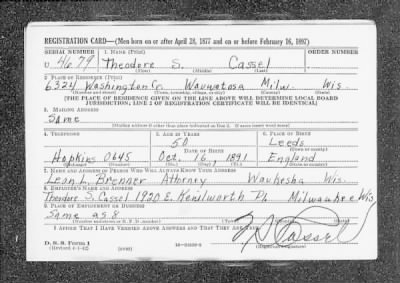 REGISTRATION CARD—(Men born on or after April 28, 1877 and on or before February 16, 1897)
SERIAL NUMBER 1. NAME (Print) ORDER NUMBER
U 4679 Theodore S. Cassel
(First) (Middle) (Last)
2. PLACE OF RESIDENCE (Print)
6324 Washington Cr. Wauwatosa Milw. Wis.
(Number and street) (Town, township, village, or city) (County) (State)
[THE PLACE OF RESIDENCE GIVEN ON THE LINE ABOVE WILL DETERMINE LOCAL BOARD
JURISDICTION; LINE 2 OF REGISTRATION CERTIFICATE WILL BE IDENTICAL]
3. MAILING ADDRESS
Same
[Mailing address if other than place indicated on line 2. If same insert word same]
4. TELEPHONE 5. AGE IN YEARS 6. PLACE OF BIRTH
50 Leeds
DATE OF BIRTH (Town or county)
Hopkins 0645 Oct. 16, 1891 England
(Exchange) (No.) (Mo.) (Day) (Yr.) (State or country)
7. NAME AND ADDRESS OF PERSON WHO WILL ALWAYS KNOW YOUR ADDRESS
Leon L. Brenner Attorney Waukesha Wis.
8. EMPLOYER'S NAME AND ADDRESS
Theodore S. Cassel 1920 E. Kenilworth Pl. Milwaukee Wis
9. PLACE OF EMPLOYMENT OR BUSINESS
Same as 8
(Number and street or R. F. D. number) (Town) (County) (State)
I AFFIRM THAT I HAVE VERIFIED ABOVE ANSWERS AND THAT THEY ARE TRUE.
Cassel
D. S. S. Form 1
(Revised 4-1-42) (over) (Registrant's signature)